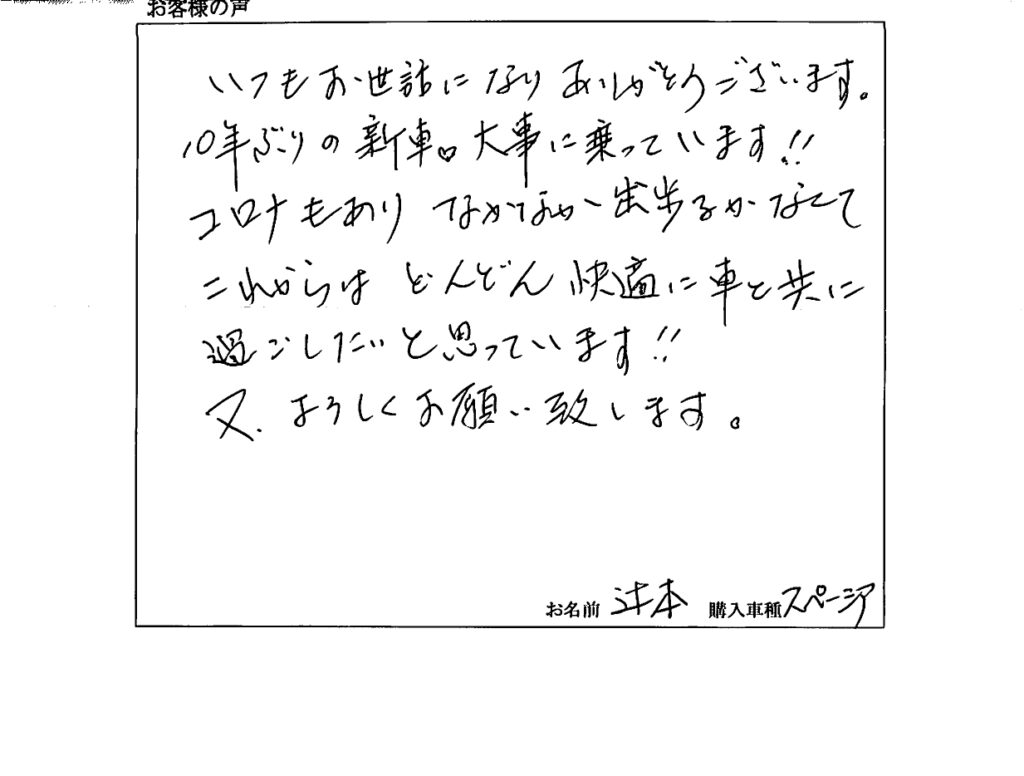 お客様の声
いつもお世話になりありがとうございます。
10年ぶりの新車。大事に乗っています!!
コロナもあり なかなか出歩るかなくて
これからは どんどん快適に車と共に
過ごしたいと思っています!!
又、よろしくお願い致します。
お名前 辻本 購入車種 スペーシア